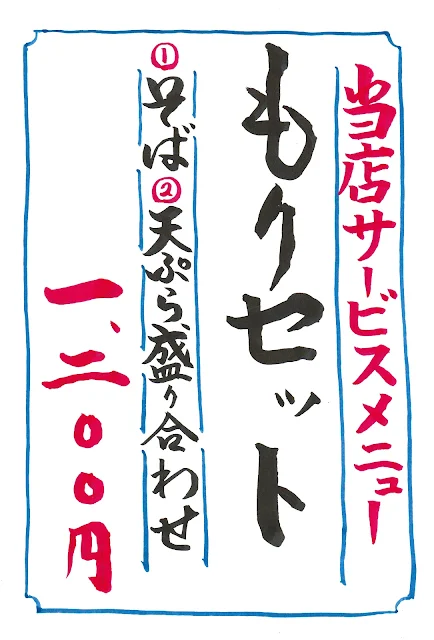 当店サービスメニュー
もりセット
①そば②天ぷら盛り合わせ
一、二〇〇円